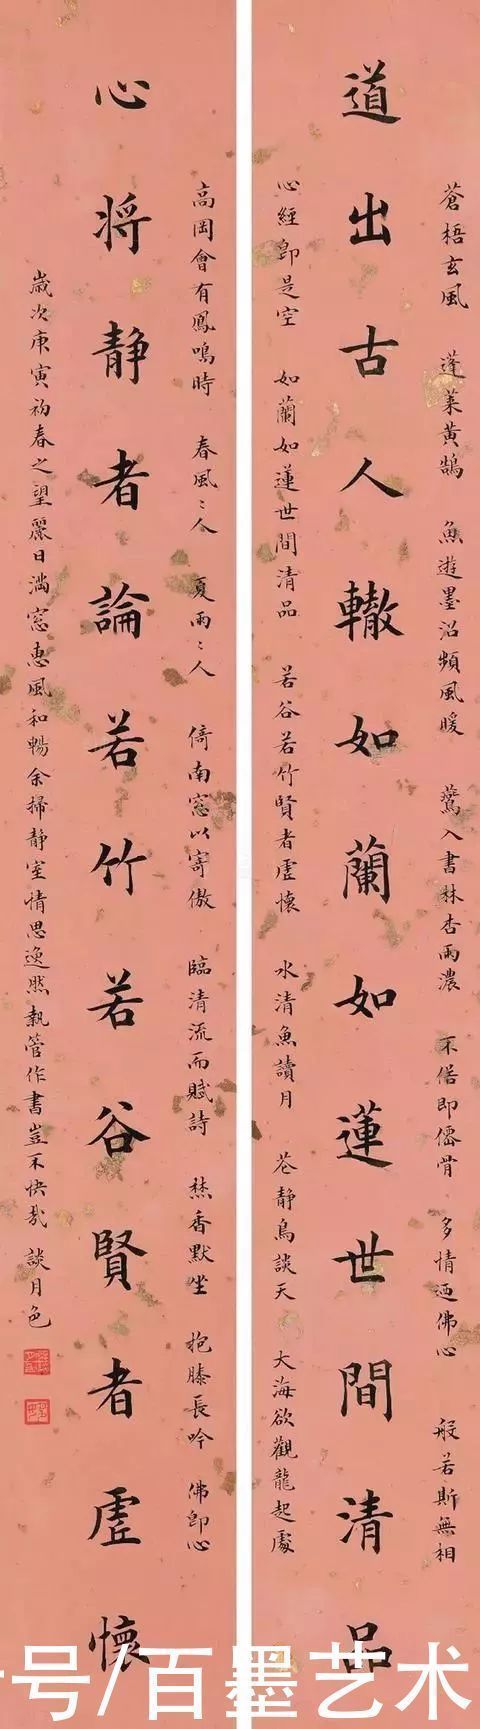 蒼梧玄風 蓬萊黃鵠 魚遊墨沼頻風暖 鶯入書林杏雨濃 不俗即僊骨 多情迺佛心 般若斯無相
道出古人轍如蘭如蓮世間清品
心經即是空 如蘭如蓮世間清品 若谷若竹賢者虛懷 水清魚讀月 花静鳥談天 大海欲觀龍起處
高岡會有鳳鳴時 春風〻人 夏雨〻人 倚南窓以寄傲 臨清流而賦詩 焚香默坐 抱膝長吟 佛即心
心將静者論若竹若谷賢者虛懷
歲次庚寅初春之望麗日滿窓惠風和暢余掃静室情思逸然執管作書豈不快哉 談月色
号/百墨艺术